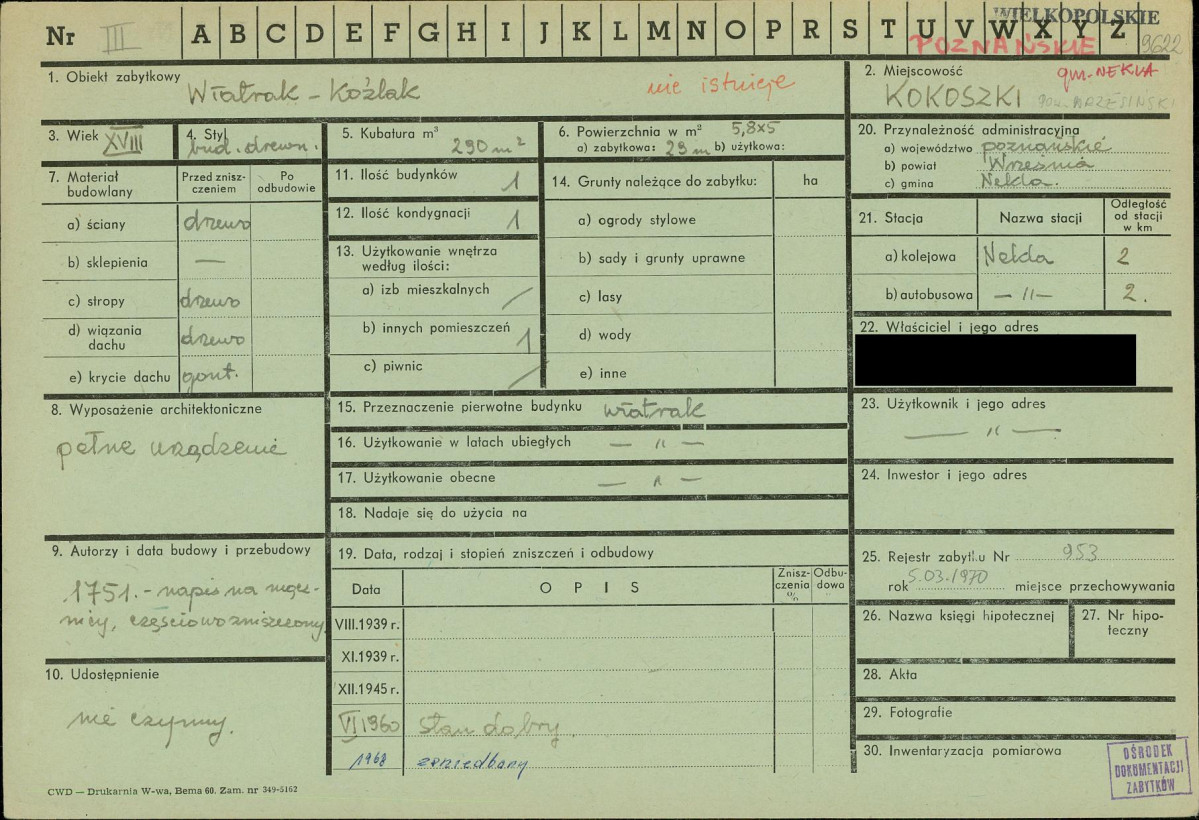 Nr III A B C D E F G H I J K L M N O P R S T U V W X Y Z
WIELKOPOLSKIE
POZNAŃSKIE 9622
1. Obiekt zabytkowy
Wiatrak - Koźlak
nie istnieje
2. Miejscowość
gm. NEKLA
KOKOSZKI pow. WRZESIŃSKI
3. Wiek XVIII
4. Styl
bud. drewn.
5. Kubatura m³
290 m²
6. Powierzchnia w m² 5,8x5
a) zabytkowa: 29 m b) użytkowa:
7. Materiał budowlany
Przed znisz-czeniem
Po odbudowie
a) ściany drewo
b) sklepienia —
c) stropy drewo
d) wiązania dachu drewo
e) krycie dachu gont.
11. Ilość budynków 1
12. Ilość kondygnacji 1
13. Użytkowanie wnętrza
według ilości:
a) izb mieszkalnych /
b) innych pomieszczeń 1
c) piwnic /
14. Grunty należące do zabytku: ha
a) ogrody stylowe
b) sady i grunty uprawne
c) lasy
d) wody
e) inne
20. Przynależność administracyjna
a) województwo poznańskie
b) powiat Września
c) gmina Nekla.
21. Stacja
Nazwa stacji
Odległość
od stacji
w km
a) kolejowa Nekla 2
b) autobusowa — 11 — 2.
22. Właściciel i jego adres
8. Wyposażenie architektoniczne
pełne urządzenie
15. Przeznaczenie pierwotne budynku wiatrak
16. Użytkowanie w latach ubiegłych — " —
17. Użytkowanie obecne — " —
18. Nadaje się do użycia na
23. Użytkownik i jego adres
— " —
24. Inwestor i jego adres
9. Autorzy i data budowy i przebudowy
1751. - napis na
częściowo zniszczony
10. Udostępnienie
nie czynny.
19. Data, rodzaj i stopień zniszczeń i odbudowy
Data
OPIS
Znisz-
czenia
%
Odbu-
dowa
"
VIII.1939 r.
XI.1939 r.
XII.1945 r.
VI 1960 stan dobry.
1968 zaniedbany
25. Rejestr zabytku Nr 953
rok 5.03.1970 miejsce przechowywania
26. Nazwa księgi hipotecznej
27. Nr hipo-
teczny
28. Akta
29. Fotografie
30. Inwentaryzacja pomiarowa
OŚRODEK
DOKUMENTACJI
ZABYTKÓW
CWD — Drukarnia W-wa, Bema 60. Zam. nr 349-5162